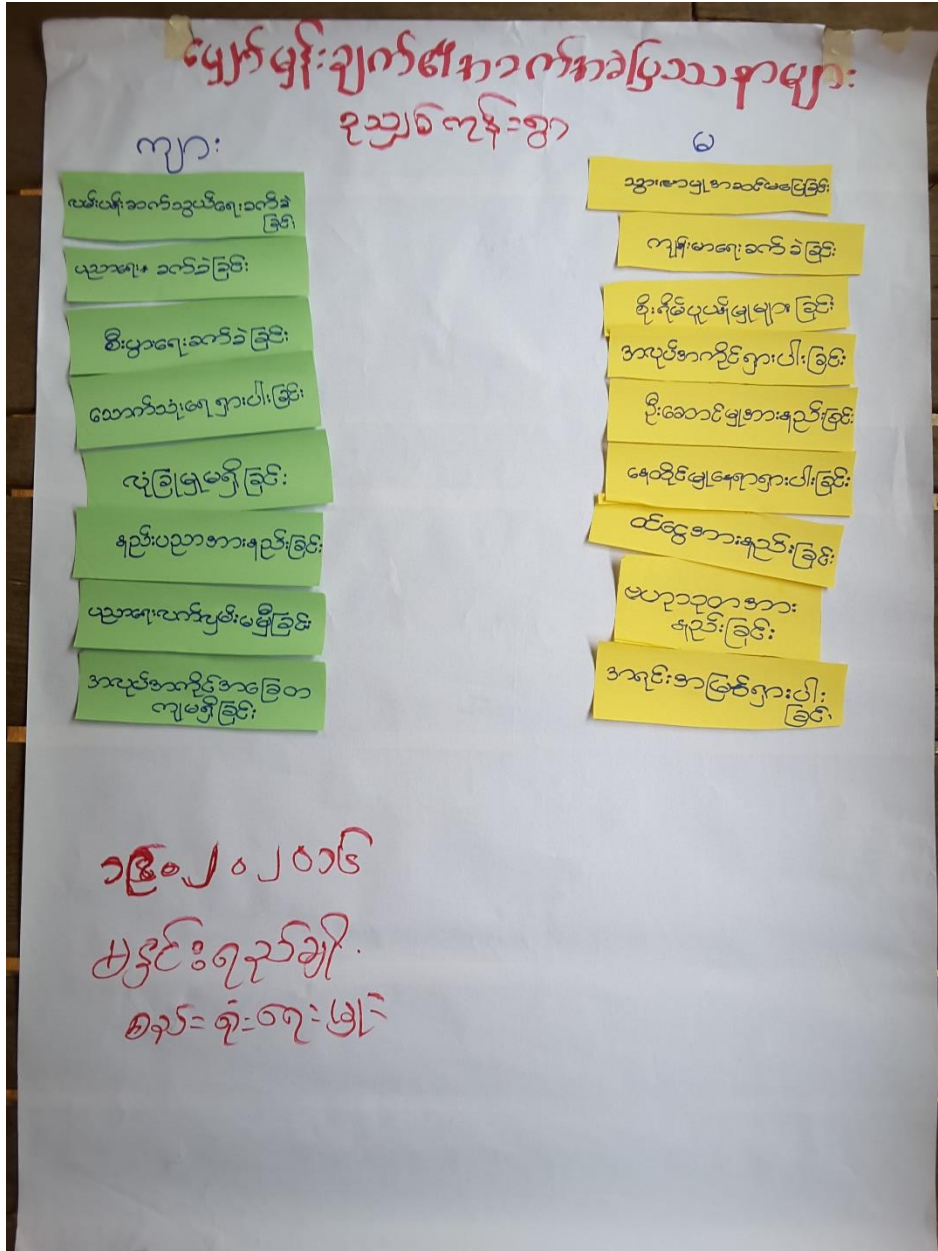 မျှော်မှန်းချက်၏အခက်အခဲပြဿနာများ
ကျား
မ
လမ်းပန်းဆက်သွယ်ရေးခက်ခဲ
ခြင်း
ပညာရေး ခက်ခဲခြင်း
စီးပွားရေးခက်ခဲခြင်း
သောက်သုံးရေရှားပါးခြင်း
လုံခြုံမှုမရှိခြင်း
နည်းပညာအားနည်းခြင်း
ပညာရေးလက်လှမ်းမမှီခြင်း
အလုပ်အကိုင်အခြေတ
ကျမရှိခြင်း
သွားလာမှုအဆင်မပြေခြင်း
ကျန်းမာရေးခက်ခဲခြင်း
စိုးရိမ်ပူပန်မှုများခြင်း
အလုပ်အကိုင်ရှားပါးခြင်း
ဦးဆောင်မှုအားနည်းခြင်း
နေထိုင်မှုနေရာရှားပါးခြင်း
ဝင်ငွေအားနည်းခြင်း
ဗဟုသုတအား
နည်းခြင်း
အရင်းအမြစ်ရှားပါး
ခြင်း
စည်းရုံးရေးမှူး